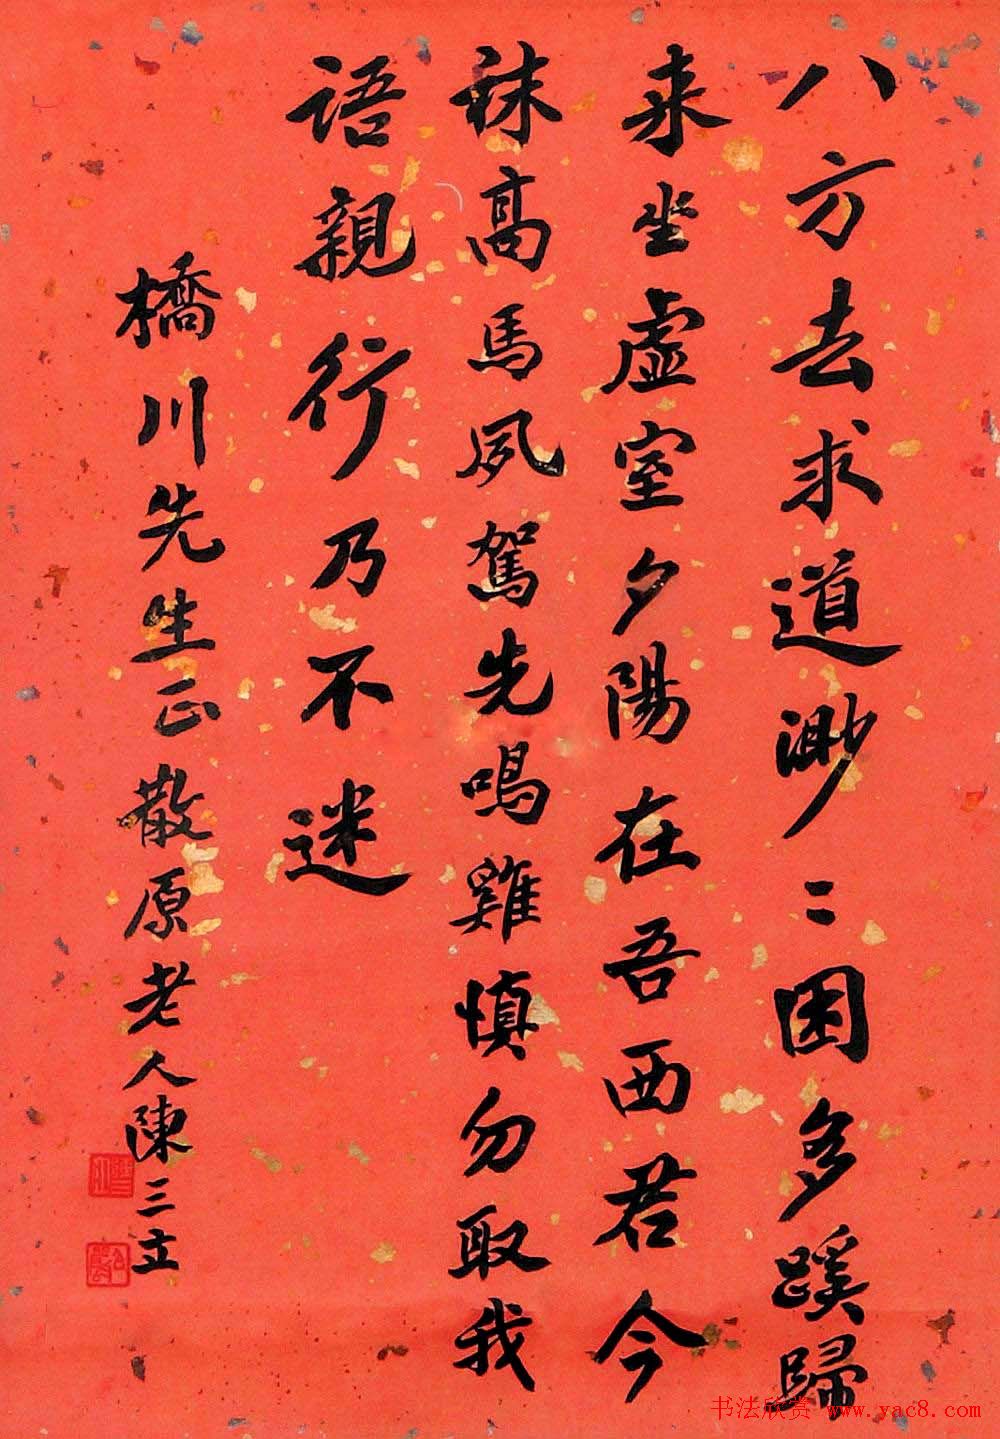 八方去求道渺〻困多蹊歸
来坐虚室夕陽在吾西君今
秣高馬夙駕先鳴雞慎勿取我
語親行乃不迷
橋川先生正散原老人陳三立
书法欣赏 www.yac8.com